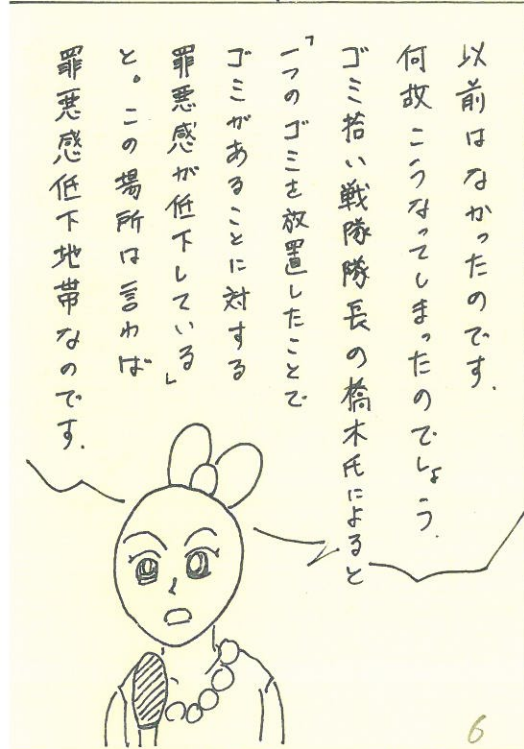 以前はなかったのです.
何故こうなってしまったのでしょう.
ゴミ拾い戦隊隊長の橋木氏によると
「一つのゴミを放置したことで
ゴミがあることに対する
罪悪感が低下している」
と。この場所は言わば
罪悪感低下地帯なのです.
6